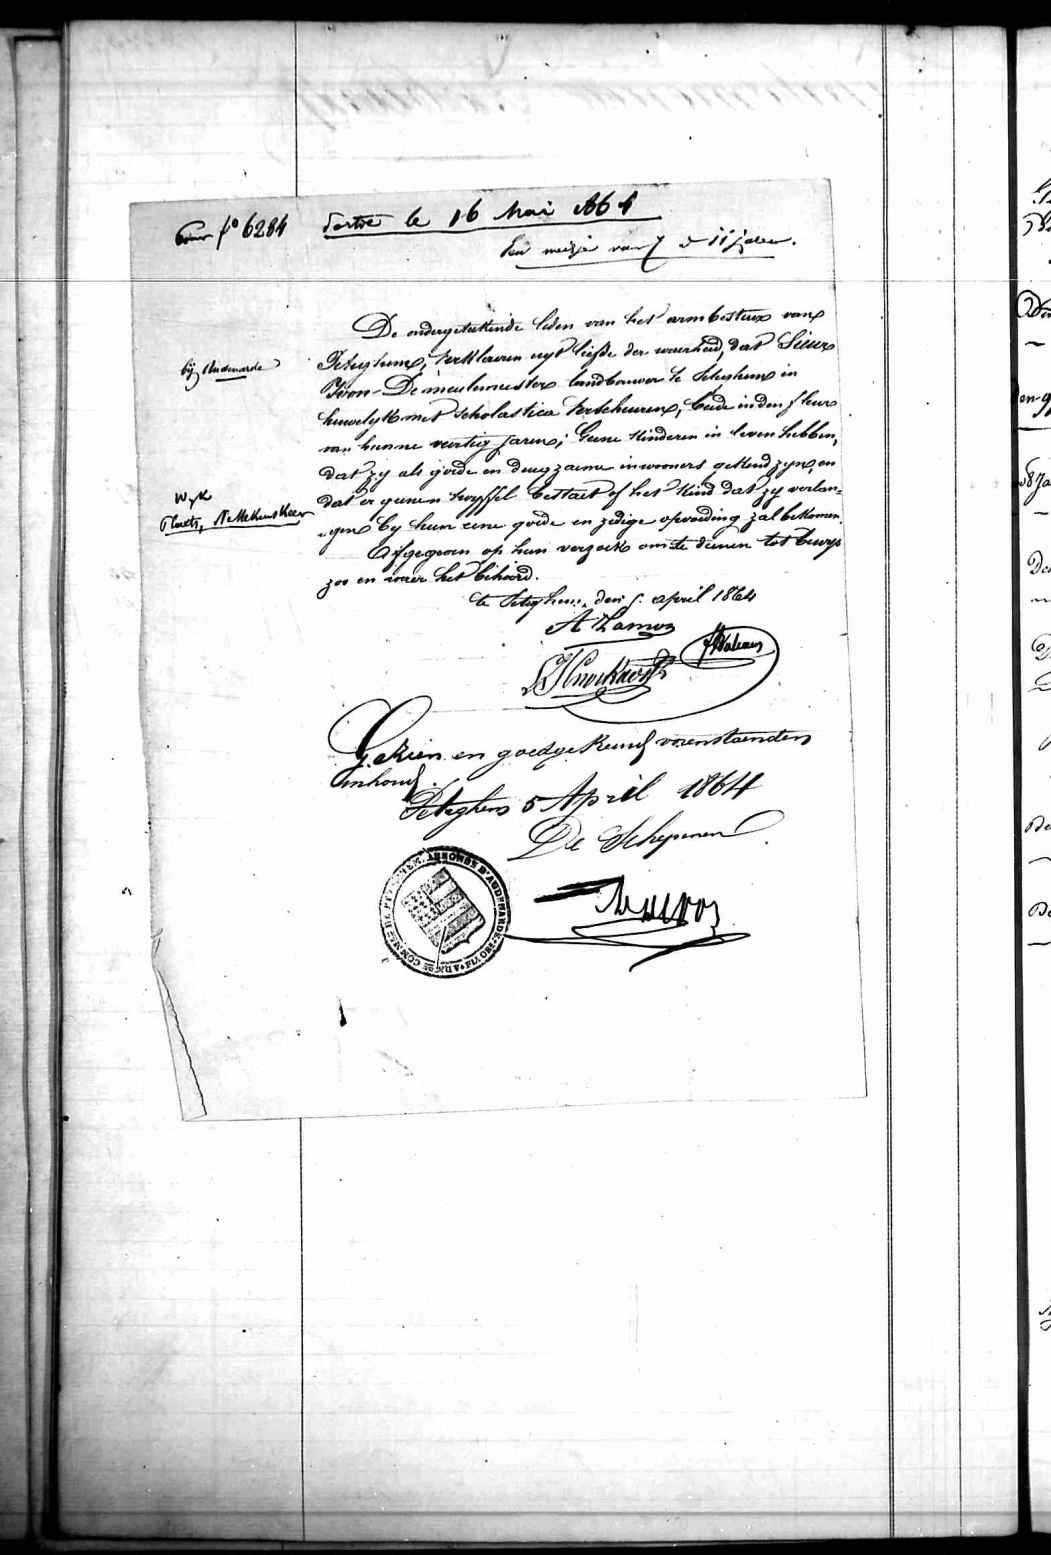 fo 6284 Sortie le 16 Mai 1864
Een meisje van 7 à 11 jaren.
De ondergeteekende leden van het armbestuer van
bij Audenarde
Peteghem, verklaeren uyt liefde der waerheid, dat Sieur
Ivon De meulemeester landbouwer te Peteghem in
huwelyk met Scholastica Verscheuren, beide in den fleur
van hunne veertig jaren; Geene kinderen in leven hebben,
dat zy als goede en deugzaeme inwooners gekend zyn, en
Wyk
dat er geenen twyffel bestaet of het kind dat zy verlan-
Plaets,
-gen by hun eene goede en zedige opvoeding zal bekomen.
Afgegeven op hun verzoek om te dienen tot bewys
zoo en waer het behoord.
te Peteghem, den 5 april 1864
Gezien en goedgekeurd vorenstaenden
inhoud.
Peteghem 5 April 1864
De Schepenen
ARROND.T D'AUDENARDE